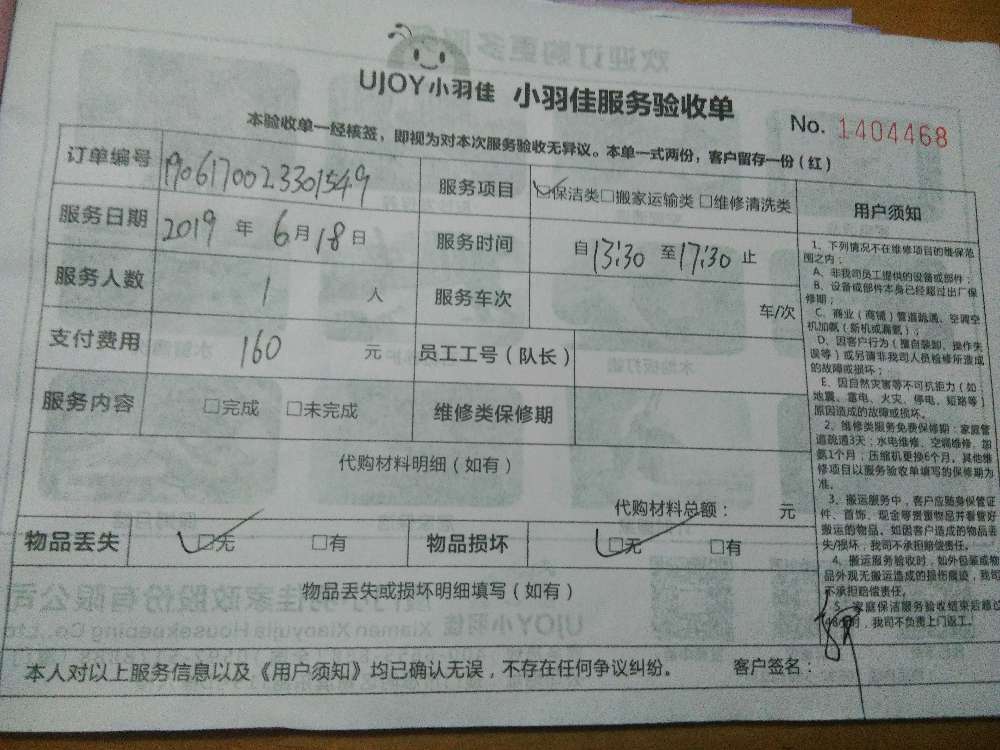 UJOY小羽佳 小羽佳服务验收单
No. 1404468
本验收单一经核签，即视为对本次服务验收无异议。本单一式两份，客户留存一份（红）
订单编号 1906170023301549 服务项目 ☑保洁类□搬家运输类 □维修清洗类
服务日期 2019 年 6月18日 服务时间 自13:30 至17:30 止
服务人数 1 人 服务车次 车/次
支付费用 160 元 员工工号（队长）
服务内容 □完成 □未完成 维修类保修期
代购材料明细（如有）
代购材料总额： 元
物品丢失 ☑无 □有 物品损坏 ☑无 □有
物品丢失或损坏明细填写（如有）
本人对以上服务信息以及《用户须知》均已确认无误，不存在任何争议纠纷。 客户签名：
用户须知
1、下列情况不在维修项目的维保范
围之内：
A、非我司员工提供的设备或部件；
B、设备或部件本身已经超过出厂保
修期；
C、商业（商铺）管道疏通、空调空
机加氨（新机或漏氨）；
D、因客户行为（擅自装卸、操作失
误等）或另请非我司人员检修所造成
的故障或损坏；
E、因自然灾害等不可抗拒力（如
地震、雷电、火灾、停电、短路等）
原因造成的故障或损坏。
2、维修类服务免费保修期：家庭管
道疏通3天；水电维修、空调维修、加
氨1个月；压缩机更换6个月。其他维
修项目以服务验收单填写的保修期为
准。
3、搬运服务中，客户应随身保管证
件、首饰、现金等贵重物品并看管好
搬运的物品。如因客户造成的物品丢
失/损坏，我司不承担赔偿责任。
4、搬运服务验收时，如外包装或物
品外观无搬运造成的损伤痕迹，我司
不承担赔偿责任。
5、家庭保洁服务验收结束后超过
48小时，我司不负责上门返工。